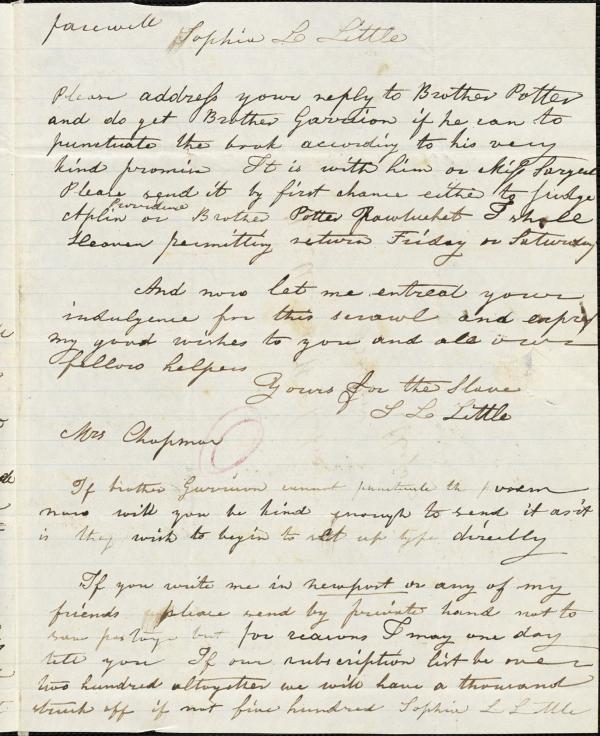 farewell
Sophia L Little
Please address your reply to Brother Potter
and do get Brother Garrison if he can to
punctuate the book according to his very
kind promise It is with him or Miss Sargent
Please send it by first chance either to Judge
Providence
Aplin or Brother Potter Pawtucket I shall
Heaven permitting return Friday or Saturday
And now let me entreat your
indulgence for this scrawl and express
my good wishes to you and all our
fellow helpers
Yours for the Slave
S L Little
Mrs Chapman
If brother Garrison cannot punctuate the poem
now will you be kind enough to send it as it
is they wish to begin to set up type directly
If you write me in newport or any of my
friends please send by private hand not to
save postage but for reasons I may one day
tell you If our subscription list be over
two hundred altogether we will have a thousand
struck off if not five hundred Sophia L Little